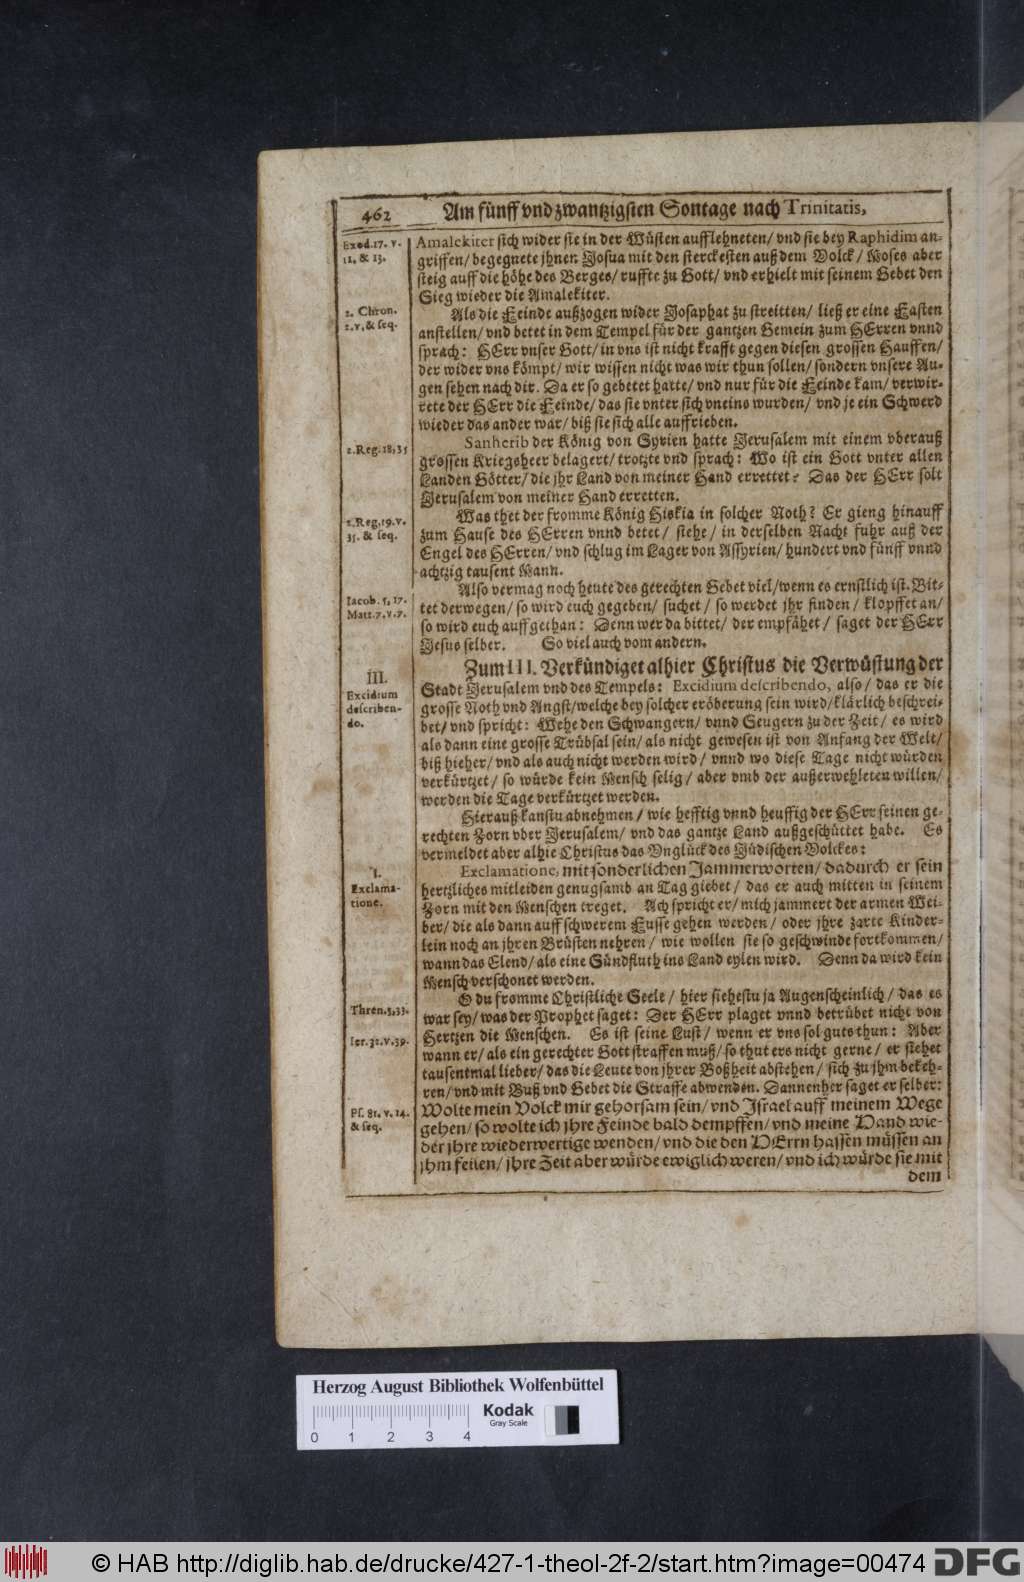 462
Am fünff vnd zwantzigsten Sontage nach Trinitatis,
Exod. 17. v.
11, & 13.
Amalekiter sich wider sie in der Wüsten aufflehneten/ vnd sie bey Raphidim an-
griffen/ begegnete jhnen Josua mit den sterckesten auß dem Volck/ Moses aber
steig auff die höhe des Berges/ ruffte zu Gott/ vnd erhielt mit seinem Gebet den
Sieg wieder die Amalekiter.
2. Chron.
2. v, & seq.
Als die Feinde außzogen wider Josaphat zu streitten/ ließ er eine Fasten
anstellen/ vnd betet in dem Tempel für der gantzen Gemein zum HErren vnnd
sprach: HErr vnser Gott/ in vns ist nicht krafft gegen diesen grossen Hauffen/
der wider vns kömpt/ wir wissen nicht was wir thun sollen/ sondern vnsere Au-
gen sehen nach dir. Da er so gebetet hatte/ vnd nur für die Feinde kam/ verwir-
rete der HErr die Feinde/ das sie vnter sich vneins wurden/ vnd je ein Schwerd
wieder das ander war/ biß sie sich alle auffrieben.
2. Reg. 18, 35
Sanherib der König von Syrien hatte Jerusalem mit einem vberauß
grossen Kriegsheer belagert/ trotzte vnd sprach: Wo ist ein Gott vnter allen
Landen Götter/ die jhr Land von meiner Hand errettet? Das der HErr solt
Jerusalem von meiner Hand erretten.
2. Reg. 19. v.
35. & seq.
Was thet der fromme König Hiskia in solcher Noth? Er gieng hinauff
zum Hause des HErren vnnd betet/ siehe/ in derselben Nacht fuhr auß der
Engel des HErren/ vnd schlug im Lager von Assyrien/ hundert vnd fünff vnnd
achtzig tausent Mann.
Iacob. 5, 17.
Matt. 7. v. 7.
Also vermag noch heute des gerechten Gebet viel/ wenn es ernstlich ist. Bit-
tet derwegen/ so wird euch gegeben/ suchet/ so werdet jhr finden/ klopffet an/
so wird euch auffgethan: Denn wer da bittet/ der empfähet/ saget der HErr
Jesus selber. So viel auch vom andern.
III.
Excidium
describen-
do.
Zum III. Verkündiget alhier Christus die Verwüstung der
Stadt Jerusalem vnd des Tempels: Excidium describendo, also/ das er die
grosse Noth vnd Angst/ welche bey solcher eröberung sein wird/ klärlich beschrei-
bet/ vnd spricht: Wehe den Schwangern/ vnnd Seugern zu der Zeit/ es wird
als dann eine grosse Trübsal sein/ als nicht gewesen ist von Anfang der Welt/
biß hieher/ vnd als auch nicht werden wird/ vnnd wo diese Tage nicht würden
verkürtzet/ so würde kein Mensch selig/ aber vmb der außerwehleten willen/
werden die Tage verkürtzet werden.
Hierauß kanstu abnehmen/ wie hefftig vnnd heuffig der HErr seinen ge-
rechten Zorn vber Jerusalem/ vnd das gantze Land außgeschüttet habe. Es
vermeldet aber alhie Christus das Vnglück des Jüdischen Volckes:
I.
Exclama-
tione.
Exclamatione, mit sonderlichen Jammerworten/ dadurch er sein
hertzliches mitleiden genugsamb an Tag giebet/ das er auch mitten in seinem
Zorn mit den Menschen treget. Ach spricht er/ mich jammert der armen Wei-
ber/ die als dann auff schwerem Fusse gehen werden/ oder jhre zarte Kinder-
lein noch an jhren Brüsten nehren/ wie wollen sie so geschwinde fortkommen/
wann das Elend/ als eine Sündfluth ins Land eylen wird. Denn da wird kein
Mensch verschonet werden.
Thren. 3, 33.
Ier. 32. v. 39.
O du fromme Christliche Seele/ hier siehestu ja Augenscheinlich/ das es
war sey/ was der Prophet saget: Der HErr plaget vnnd betrübet nicht von
Hertzen die Menschen. Es ist seine Lust/ wenn er vns sol guts thun: Aber
wann er/ als ein gerechter Gott straffen muß/ so thut ers nicht gerne/ er siehet
tausentmal lieber/ das die Leute von jhrer Boßheit abstehen/ sich zu jhm bekeh-
ren/ vnd mit Buß vnd Gebet die Straffe abwenden. Dannenher saget er selber:
Ps. 81. v. 14.
& seq.
Wolte mein Volck mir gehorsam sein/ vnd Israel auff meinem Wege
gehen/ so wolte ich jhre Feinde bald dempffen/ vnd meine Hand wie-
der jhre wiederwertige wenden/ vnd die den HErrn hassen müssen an
jhm feilen/ jhre Zeit aber würde ewiglich weren/ vnd ich würde sie mit
dem
Herzog August Bibliothek Wolfenbüttel
Kodak
Gray Scale
0 1 2 3 4
© HAB http://diglib.hab.de/drucke/427-1-theol-2f-2/start.htm?image=00474
DFG